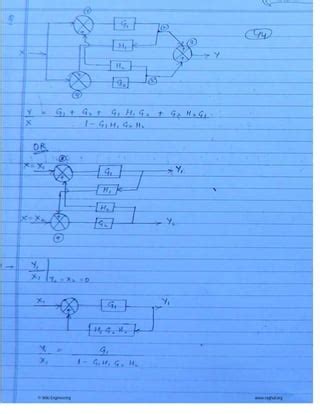 G₁
H₁
X
Y
H₂
G₂
Y/X = G₁ + G₂ + G₁ H₁ G₂ + G₂ H₂ G₁ / 1 - G₁ H₁ G₂ H₂
OR
X=X₁
G₁
Y₁
H₁
H₂
X=X₂
G₂
Y₂
Y₁/X₁ | Y₂ = X₂ = 0
G₁
Y₁
H₁ G₂ H₂
Y₁/X₁ = G₁ / 1 - G₁ H₁ G₂ H₂
© Wiki Engineering
www.raghul.org